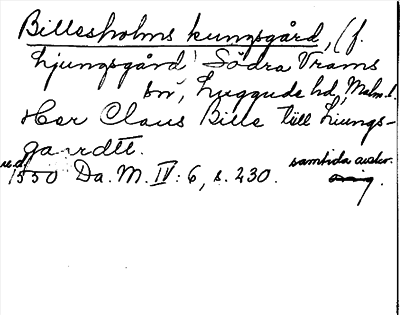 Billesholms kungsgård, (f.
Ljungsgård) Södra Vrams
sn, Luggude hd, Malm. l.
Her Claus Bille till Liungs-
gardtt.
u.d. 1550 Da. M. IV: 6, s. 230. samtida avskr.